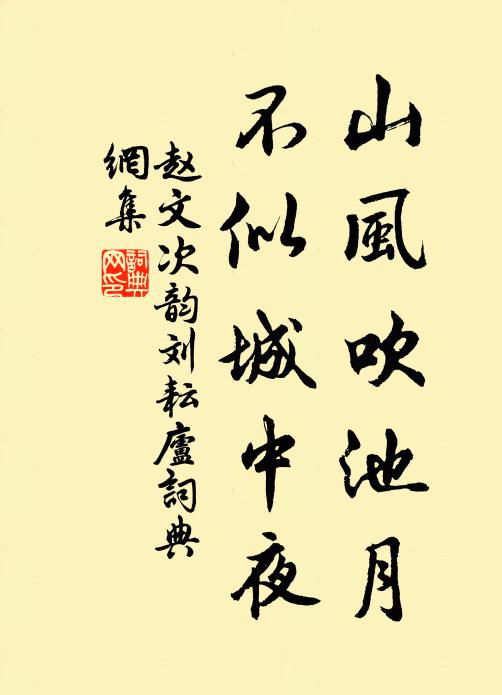 山風吹池月
不似城中夜
赵文次韵刘耘廬詞典
網集
詞典
网印